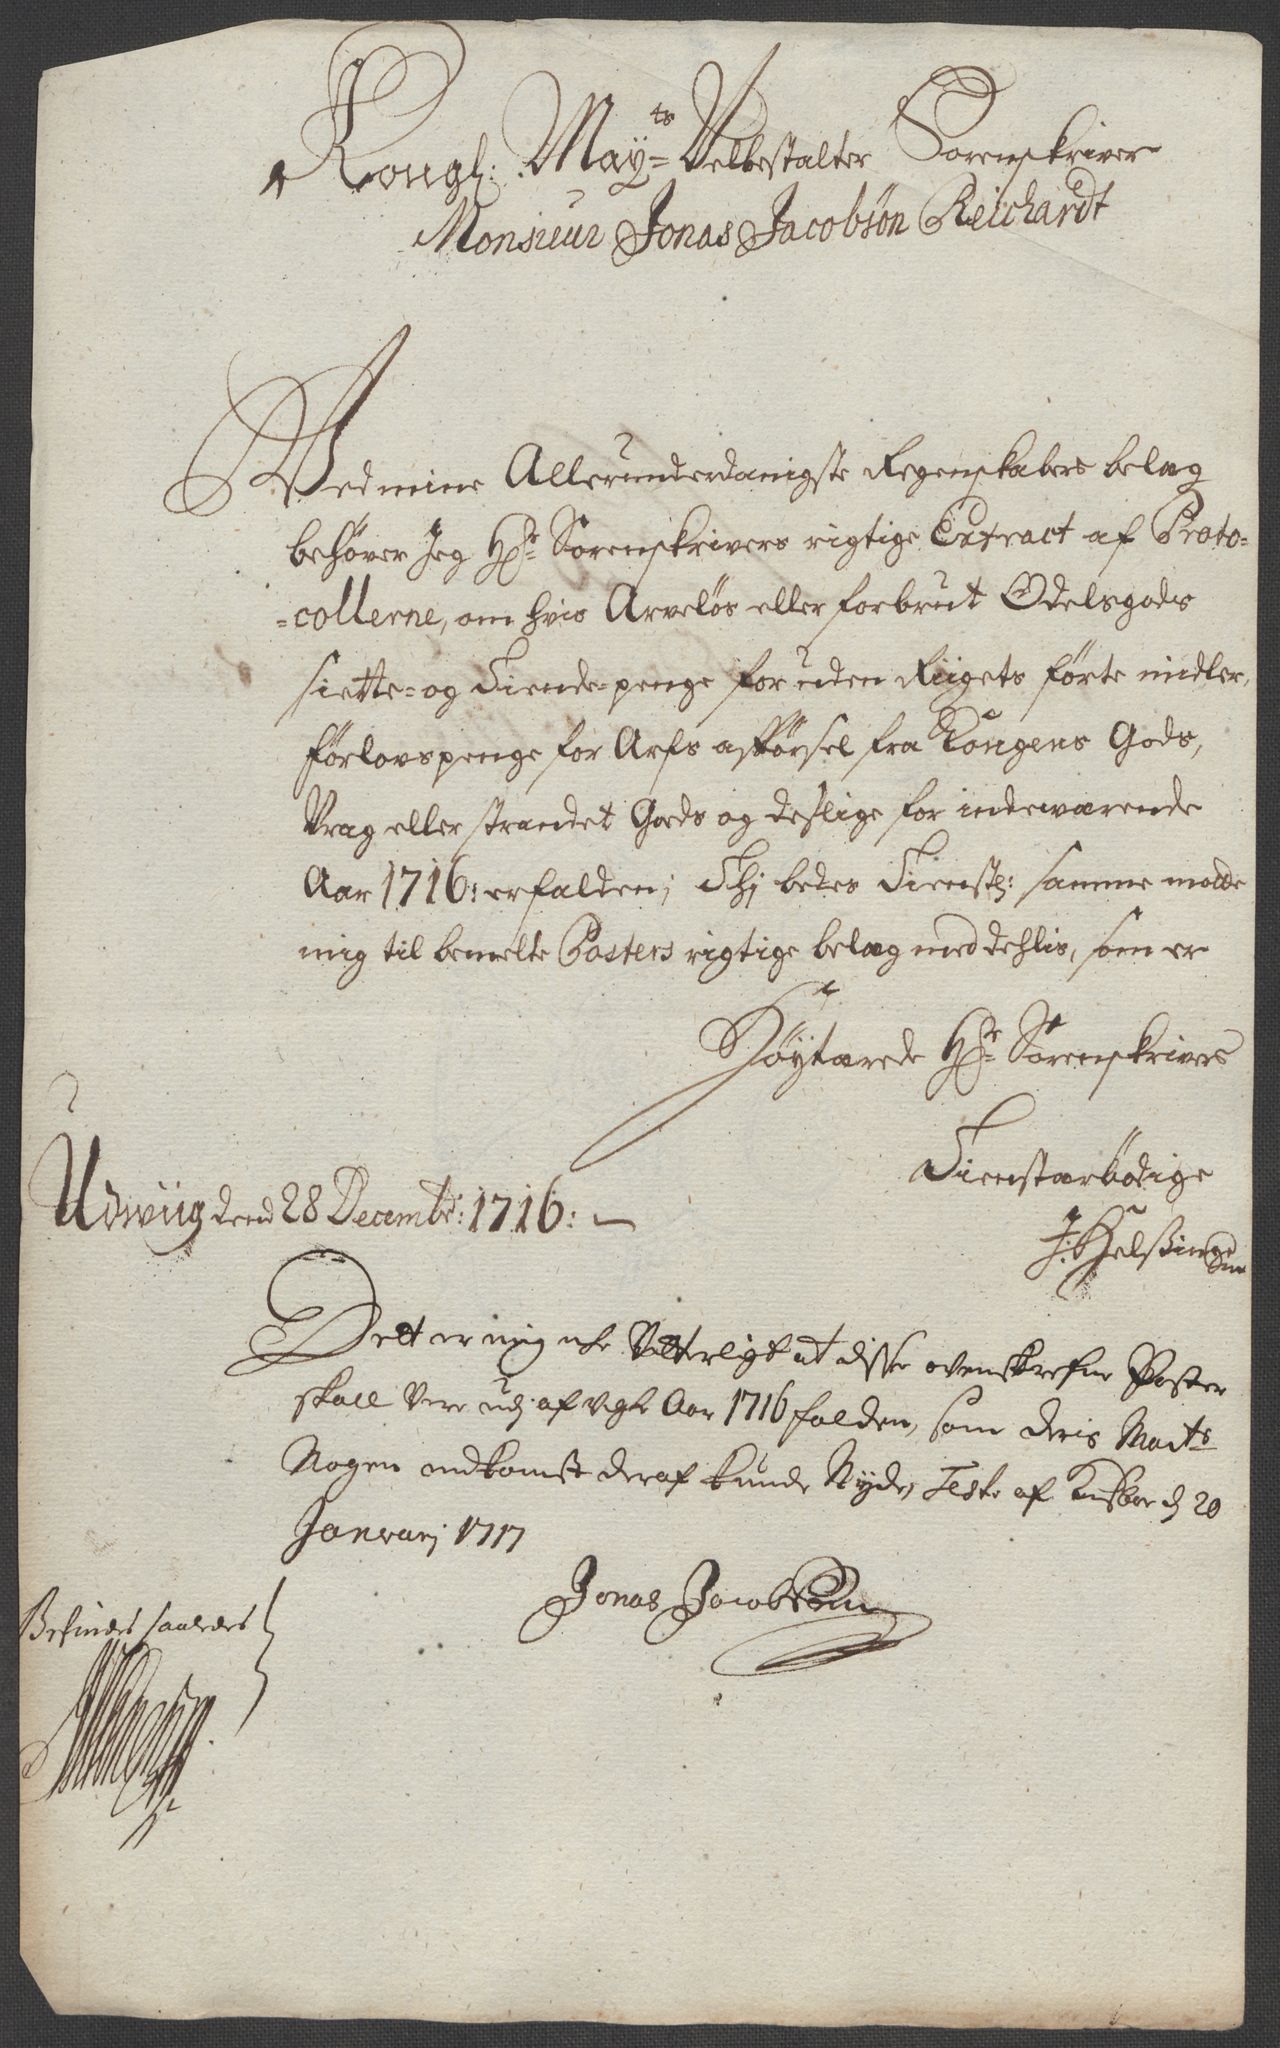 Kongl: May:ts Velbestalter Sorenskriver
Monsieur Jonas Jacobsön Reichardt
Ved mine Allerunderdanigste Regenskabers belæg
behøver Jeg Hr: Sorenskrivers rigtige Extract af Proto=
=collerne, om hvis Arveløs eller forbrut Odelsgods
siette= og Tiende=penge for uden Riigets førte midler,
førlovspenge for Arfs afførsel fra Kongens Gods,
Vrag eller strandet Goeds og deslige for indeværende
Aar 1716: erfalden; Thj bedes Tienstl: samme
mig til bemelte Posters rigtige belæg meddehlis, som er
Höytærede Hr: Sorenskrivers
Tienstærbödige
Udwiig dend 28 Decembr: 1716:
J: Helssing
Dett er mig iche Vitterligt at disse ovenskrefne Poster
skall Vere udj afvigte Aar 1716 falden, som deris Maits
Nogen indkomst deraf kunde Nyde, Teste af d 20
Januarj 1717
Jonas Jacobsøn
Befindes saaledes